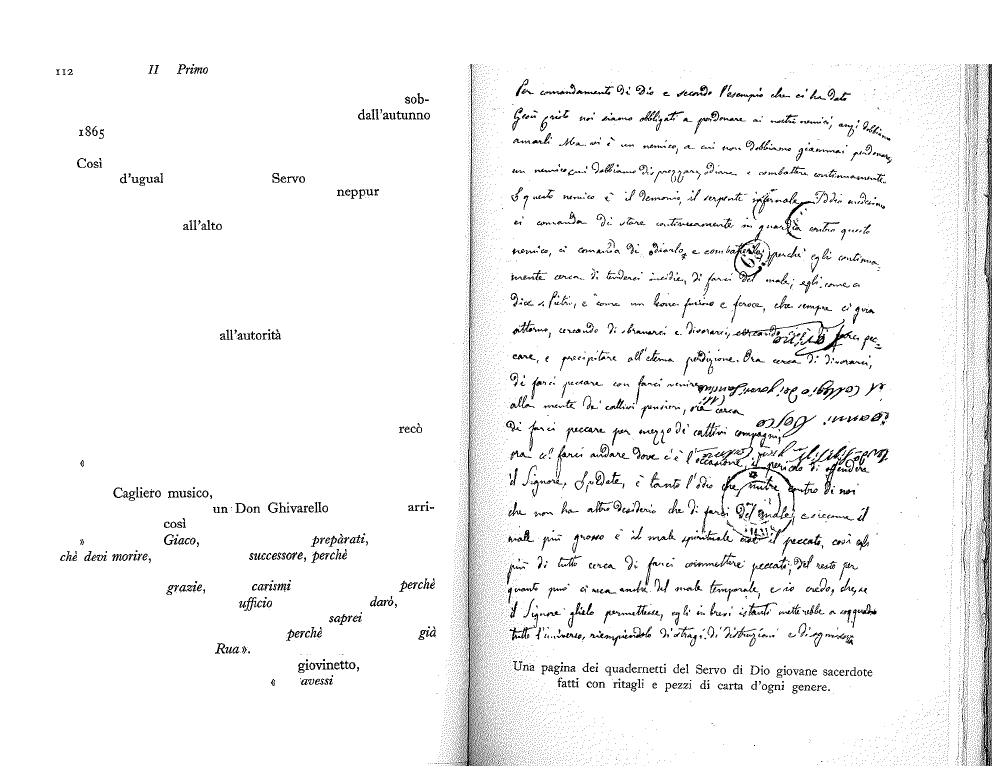 112 II Primo
sob-
dall'autunno
1865
Così
d'ugual Servo
neppur
all'alto
all'autorità
recò
«
Cagliero musico,
un Don Ghivarello arri-
così
» Giaco, prepàrati,
chè devi morire, successore, perchè
grazie, carismi perchè
ufficio darò,
saprei
perchè già
Rua».
giovinetto,
« avessi
Per comandamento di Dio e secondo l'esempio che ci ha dato
Gesù Cristo noi siamo obbligati a perdonare ai nostri nemici, anzi dobbiamo
amarli Ma vi è un nemico, a cui non dobbiamo giammai perdonare,
un nemico cui dobbiamo disprezzare, odiare e combattere continuamente.
E questo nemico è il demonio, il serpente infernale. Iddio medesimo
ci comanda di stare continuamente in guardia contro questo
nemico, ci comanda di odiarlo, e combatterlo; perchè egli continua-
mente cerca di tenderci insidie, di farci del male; egli come
dice s. Pietro, è come un leone furioso e feroce, che sempre ci gira
attorno, cercando di sbranarci e divorarci, cercando di farci pec-
care, e precipitare all'eterna perdizione. Ora cerca di divorarci,
di farci peccare con farci venire
alla mente de' cattivi pensieri, ora cerca
di farci peccare per mezzo de' cattivi compagni,
ora di farci andare dove c'è l'occasione, il pericolo di offendere
il Signore, è tanto l'odio che nutre contro di noi
che non ha altro desiderio che di farci del male; e siccome il
male più grosso è il male spirituale cioè il peccato, così egli
più di tutto cerca di farci commettere peccati; Del resto per
quanto può ci reca anche del male temporale, e io credo, che, se
il Signore glielo permettesse, egli in brevi istanti metterebbe a soqquadro
tutto l'universo, riempiendolo di stragi, di distruzioni e di
Una pagina dei quadernetti del Servo di Dio giovane sacerdote
fatti con ritagli e pezzi di carta d'ogni genere.